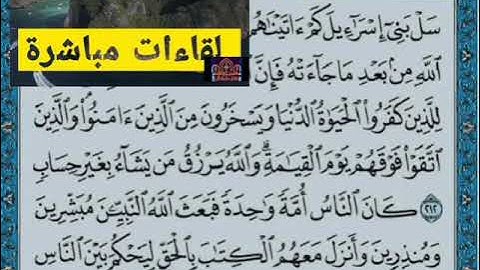 لقاءات مباشرة
سَلْ بَنِىٓ إِسْرَٰٓءِيلَ كَمْ ءَاتَيْنَٰهُم
ٱللَّهِ مِنۢ بَعْدِ مَا جَآءَتْهُ فَإِنَّ
لِلَّذِينَ كَفَرُوا۟ ٱلْحَيَوٰةُ ٱلدُّنْيَا وَيَسْخَرُونَ مِنَ ٱلَّذِينَ ءَامَنُوا۟ وَٱلَّذِينَ
ٱتَّقَوْا۟ فَوْقَهُمْ يَوْمَ ٱلْقِيَٰمَةِ ۗ وَٱللَّهُ يَرْزُقُ مَن يَشَآءُ بِغَيْرِ حِسَابٍ
٢١٢ كَانَ ٱلنَّاسُ أُمَّةً وَٰحِدَةً فَبَعَثَ ٱللَّهُ ٱلنَّبِيِّۦنَ مُبَشِّرِينَ
وَمُنذِرِينَ وَأَنزَلَ مَعَهُمُ ٱلْكِتَٰبَ بِٱلْحَقِّ لِيَحْكُمَ بَيْنَ ٱلنَّاسِ